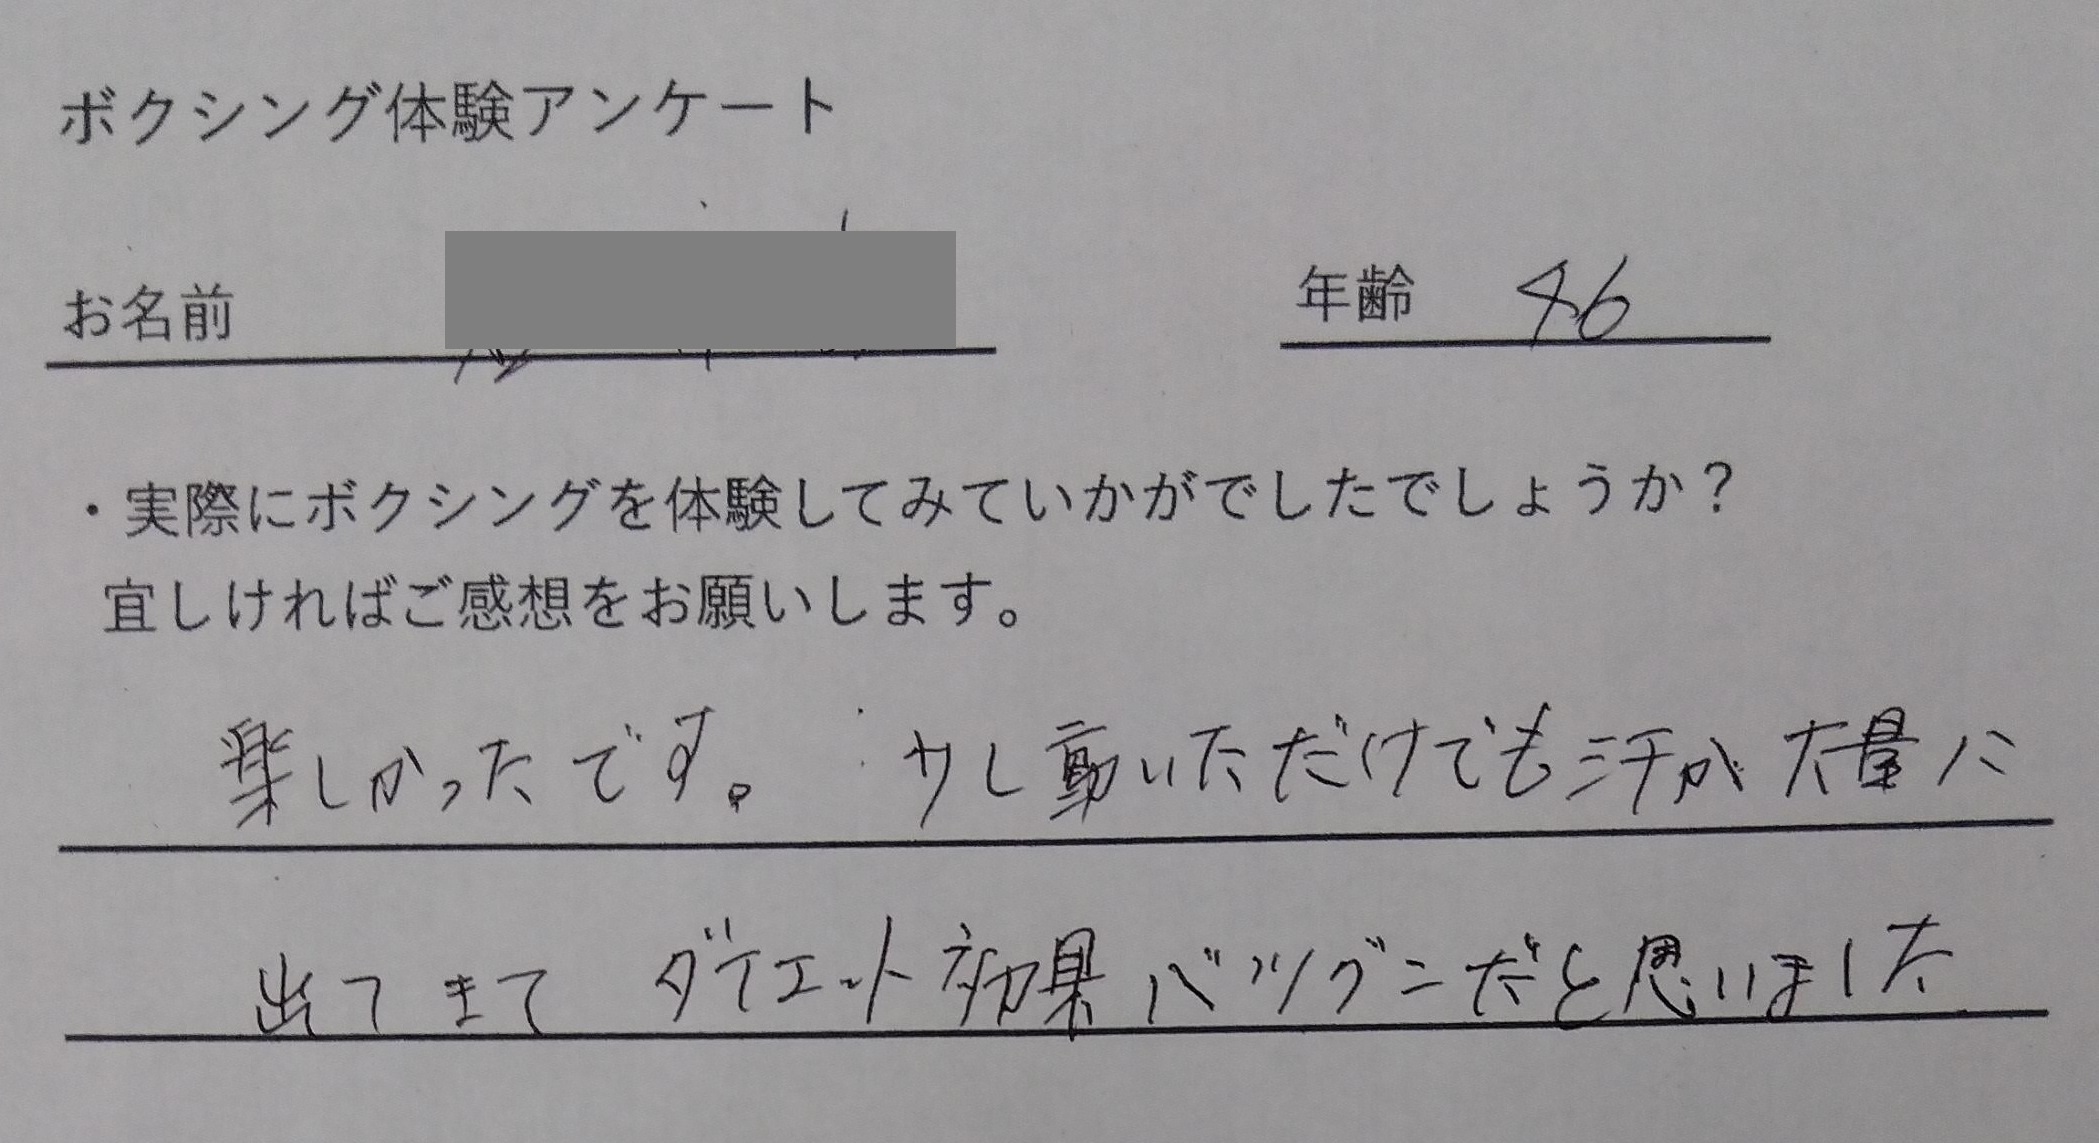 ボクシング体験アンケート
お名前 年齢 46
・実際にボクシングを体験してみていかがでしたでしょうか？
宜しければご感想をお願いします。
楽しかったです。 少し動いただけでも汗が大量に
出てきて ダイエット効果バツグンだと思いました